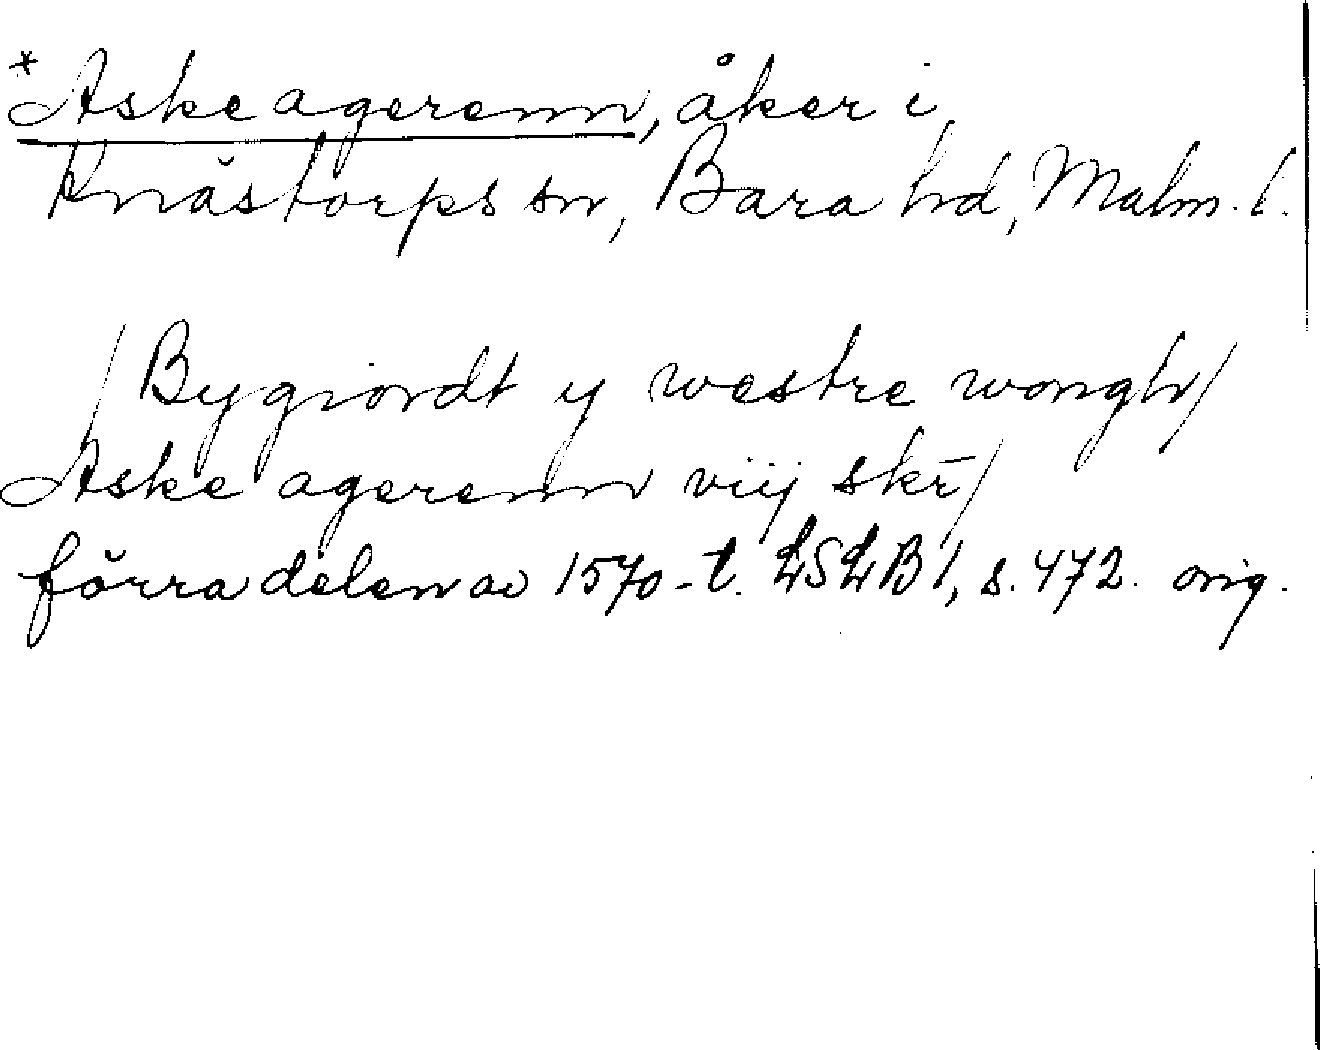 *Aske agerenn, åker i
Knästorps sn, Bara hd, Malm. l.
/Bygiordt y westre wongh/
Aske agerenn viij skr̄/
förra delen av 1570-t. LSLB 1, s. 472. orig.